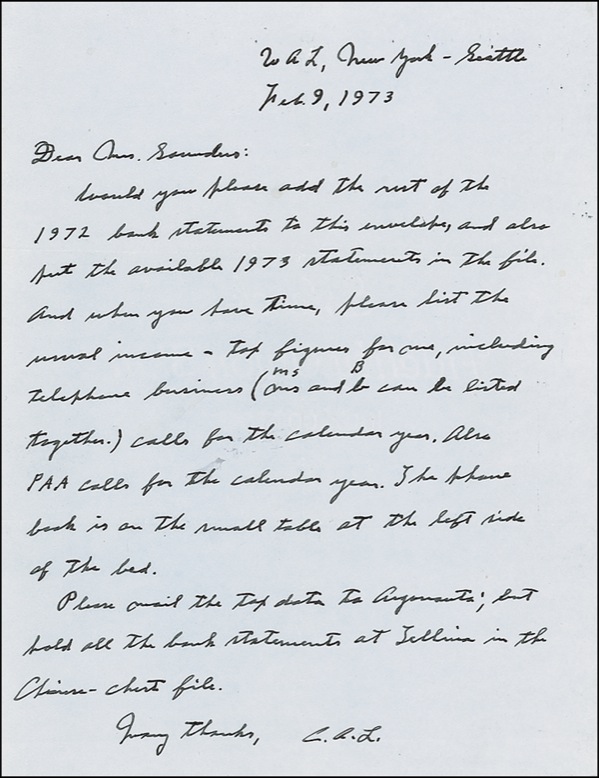 UAL, New York - Seattle
Feb. 9, 1973
Dear Mrs. Saunders:
Would you please add the rest of the
1972 bank statements to this envelope, and also
put the available 1973 statements in the file.
And when you have time, please list the
usual income - tax figures for me, including
telephone business (ms and B can be listed
together.) calls for the calendar year. Also
PAA calls for the calendar year. The phone
book is on the small table at the left side
of the bed.
Please mail the tax data to Argonauta; but
hold all the bank statements at Tellina in the
Chinese-chest file.
Many thanks, C.A.L.